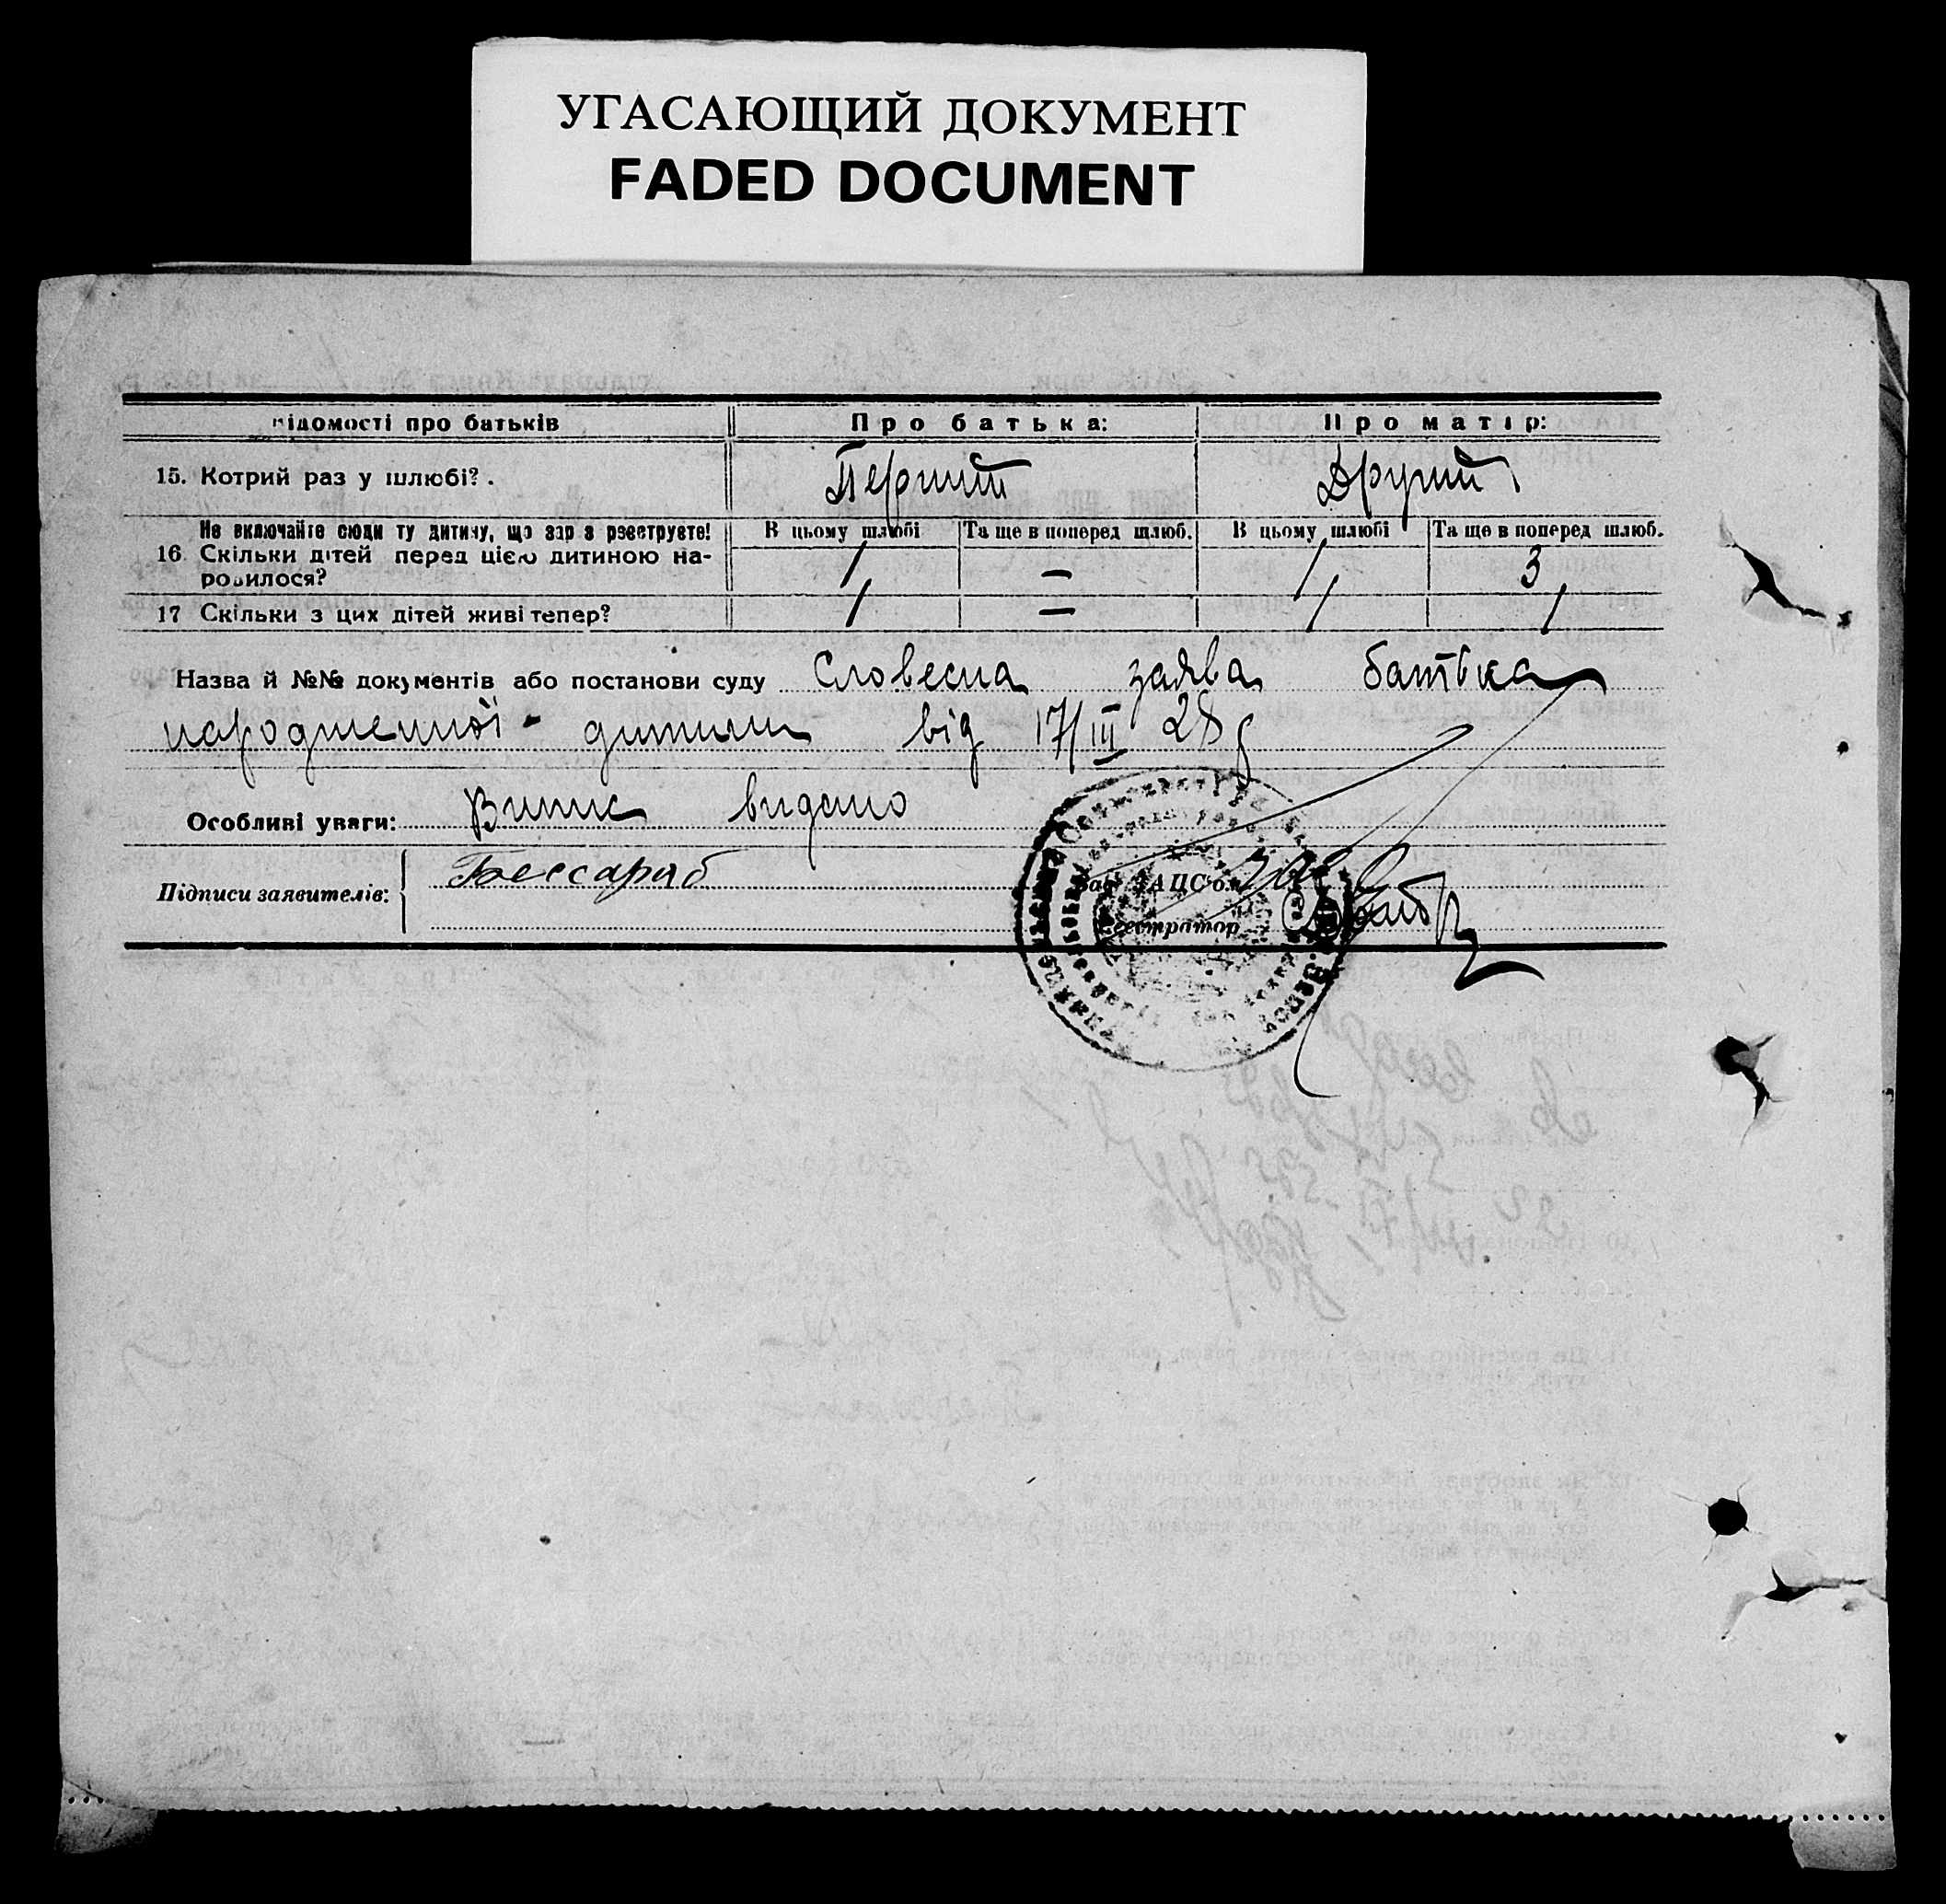 УГАСАЮЩИЙ ДОКУМЕНТ
FADED DOCUMENT
відомості про батьків Про батька: Про матір:
15. Котрий раз у шлюбі? Перший Другий
Не включайте сюди ту дитину, що зараз реєструєте! В цьому шлюбі Та ще в поперед шлюб. В цьому шлюбі Та ще в поперед шлюб.
16. Скільки дітей перед цією дитиною на-
родилося? 1 — 1 3
17 Скільки з цих дітей живі тепер? 1 — 1 1
Назва й №№ документів або постанови суду Словесна заява батька
народженної дитини від 17/III 28 р
Особливі уваги: Випис видано
Підписи заявителів: Бессараб
Зав. ЗАЦС'ом
Реєстратор